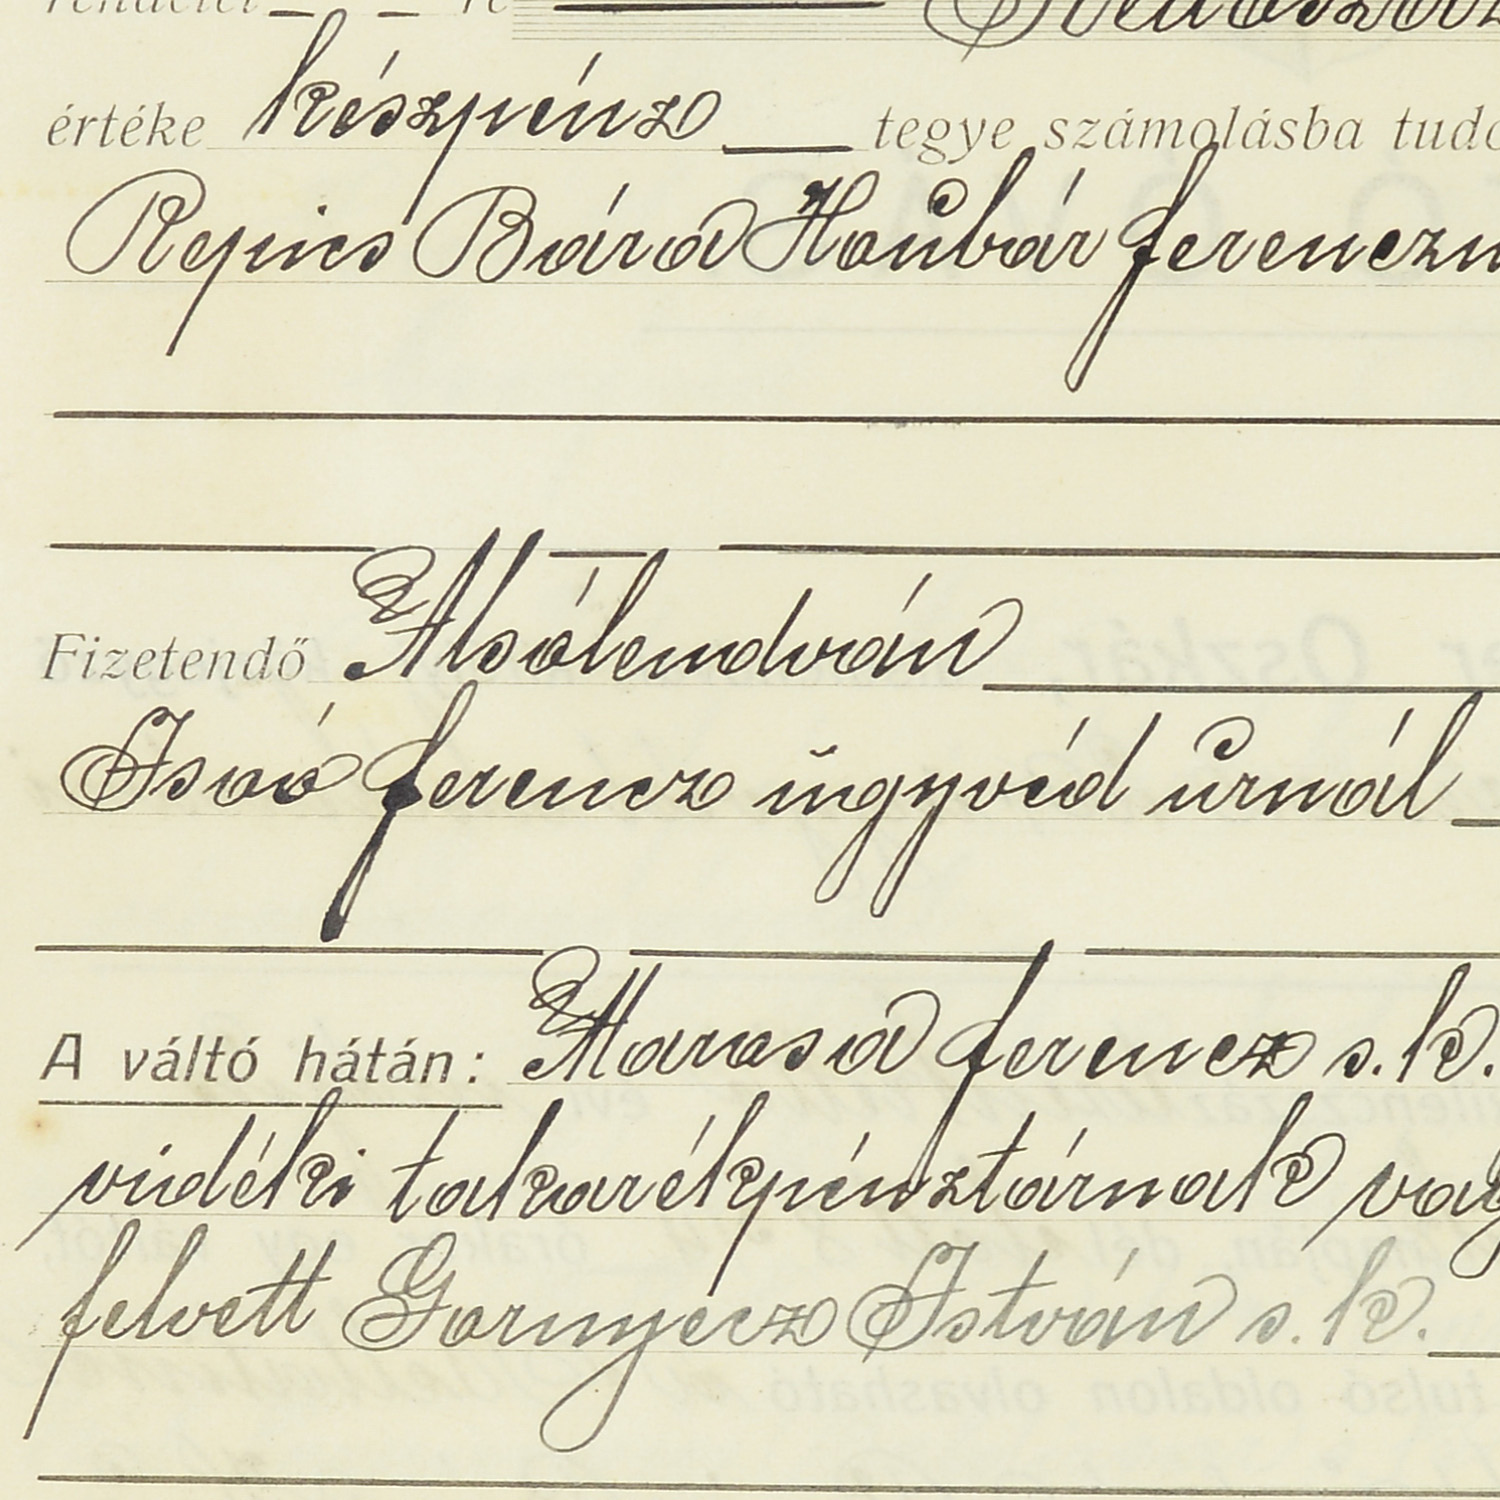 rendelet re
értéke készpénz tegye számolásba
Repics Bára Haubár ferenczn
Fizetendő Alsólendván
Isoó ferencz ügyvéd urnál
A váltó hátán: Marasa ferencz s. k.
vidéki takarékpénztárnak
felvett Gornyecz István s. k.